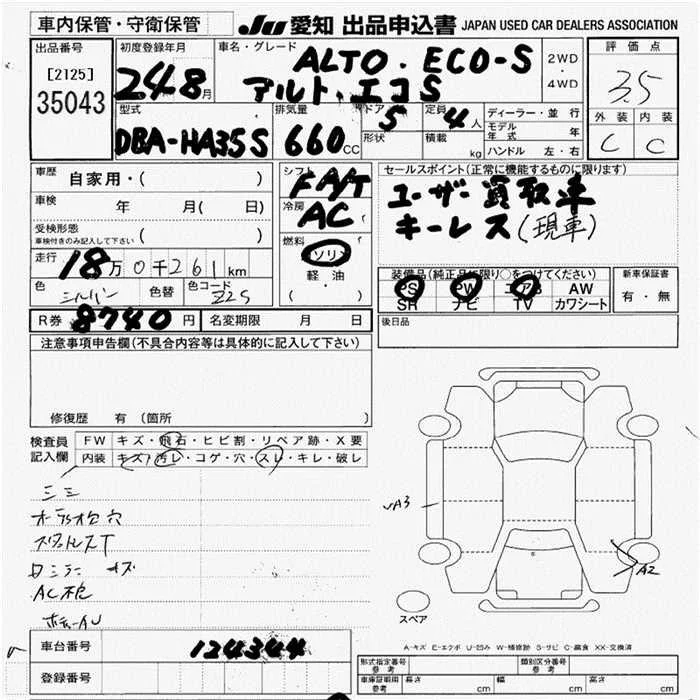 車内保管・守衛保管
JU 愛知 出品申込書 JAPAN USED CAR DEALERS ASSOCIATION
出品番号
[2125]
35043
初度登録年月
24 8月
車名・グレード
ALTO・ECO-S
アルト・エコS
2WD
・
4WD
評価点
3.5
外装 内装
C C
型式
DBA-HA35S
排気量
660cc
ドア
5
形状
定員
4人
積載 kg
ディーラー・並行
モデル年式 年
ハンドル 左・右
車歴 自家用・( )
車検 年 月( 日)
受検形態
車検付きのみ記入して下さい ( )
走行 18万0千261km
色 シルバー 色替 色コード Z2S
シフト
FA/T
冷房
AC
燃料
ソリン
軽油
( ・ )
セールスポイント(正常に機能するものに限ります)
ユーザー買取車
キーレス(現車)
装備品(純正品に限り○をつけてください)
PS PW エア AW
SR ナビ TV カワシート
新車保証書
有・無
R券 8740円 名変期限 月 日
後日品
注意事項申告欄(不具合内容等は具体的に記入して下さい)
修復歴 有(箇所
検査員記入欄
FW キズ・飛石・ヒビ割・リペア跡・X要
内装 キズ・汚レ・コゲ・穴・スレ・キレ・破レ
AC
A3
A2
スペア
A-キズ E-エクボ U-凹み W-補修跡 S-サビ C-腐食 XX-交換済
車台番号 124344
登録番号
形式指定番号 参考
類別区分番号 参考
車庫証明用 参考 長さ cm 幅 cm 高さ cm